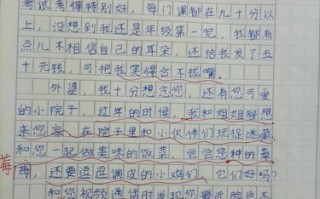 考试考得特别好，每门课都在九十分以
上，没想到我还是年级第一呢，我都有
点儿不相信自己的耳朵，还给我发了五
十元钱，可把我笑得合不拢嘴。
外婆，我十分想念您，还有您可爱
的小院子，过年的时候，我和姐姐都想
来您家，在院子里和小伙伴们玩捉迷藏
和您一起做美味的饭菜，尝尝您种的草
莓，还要逗逗调皮的小鸡们，它们好吗？
和您视频通话时发现您最近脸色不
莓